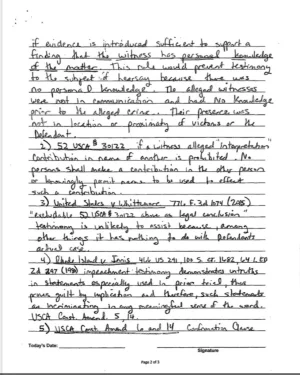 if evidence is introduced sufficient to support a
finding that the witness has personal knowledge
of the matter. This rule would prevent testimony
to the subject if hearsay because there was
no persona D knowledge. No alleged witnesses
were not in communication and had No Knowledge
prior to the alleged crime. Their presence was
not in location or proximity of victims or the
Defendant.
2.) 52 USCA § 30122 if a witness alleged "interpretation"
Contribution in name of another is prohibited. No
persons shall make a contribution in the other person
or knowingly permit name to be used to effect
such a contribution.
3.) United States v. Whittemore 776 F.3d 1074 (2015)
"excludable 52 USC § 30122 above as legal conclusion"
testimony is unlikely to assist because, among
other things it has nothing to do with Defendants
actual case.
4.) Rhode Island v. Innis 446 US 291, 100 S. Ct. 1682, 64 L. ED
2d 297 (1980) impeachment testimony demonstrates untruths
in statements especially used in prior trial, thus
proves guilt by implication and therefore, such statements
as incriminating in any meaningful sense of the word.
USCA Const. Amend. 5, 14.
5.) USCA Const Amend 6 and 14 Confrontation Clause
Today's Date:
Signature
Page 2 of 3